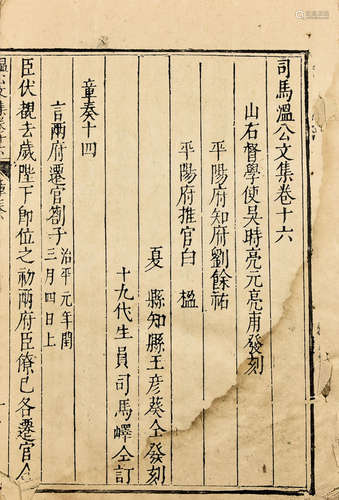 司馬溫公文集卷十六
山右督學使吳時亮元亮甫發刻
平陽府知府劉餘祐
平陽府推官白 楹
夏 縣知縣王彥葵仝發刻
十九代生員司馬嶧仝訂
章奏十四
言兩府遷官劄子 治平元年閏
三月四日上
臣伏覩去歲陛下即位之初兩府臣僚已各遷官今